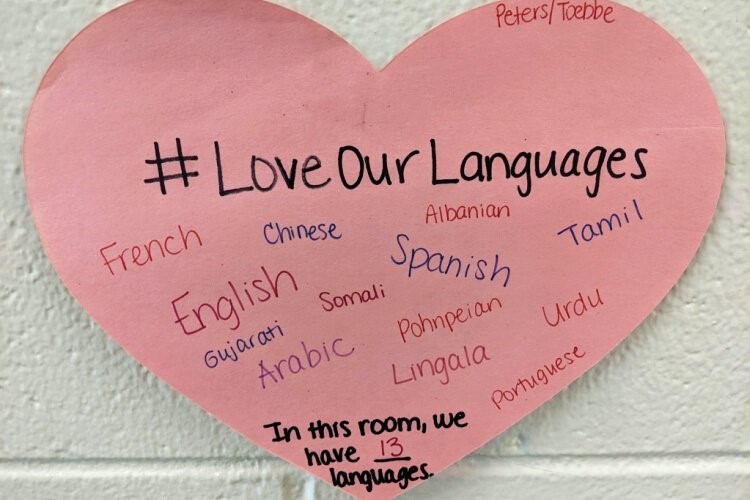 Peters/Toebbe
#LoveOurLanguages
French Chinese Albanian Tamil
English Somali Spanish
Gujarati Arabic Pohnpeian Urdu
Lingala Portuguese
In this room, we
have 13
languages.